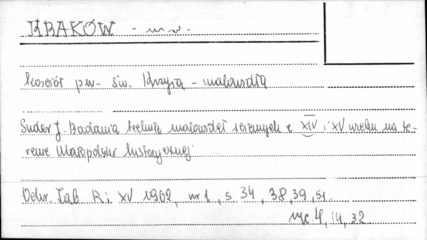 KRAKÓW - m.w.
kościół pw. św. Krzyża - malowidła
Suder J. Badania techniki malowideł ściennych z XIV i XV wieku na te-
renie Małopolski historycznej
Ochr. Zab. R. XV 1962, nr 1, s 34, 38, 39, 51.
ryc 4, 14, 32